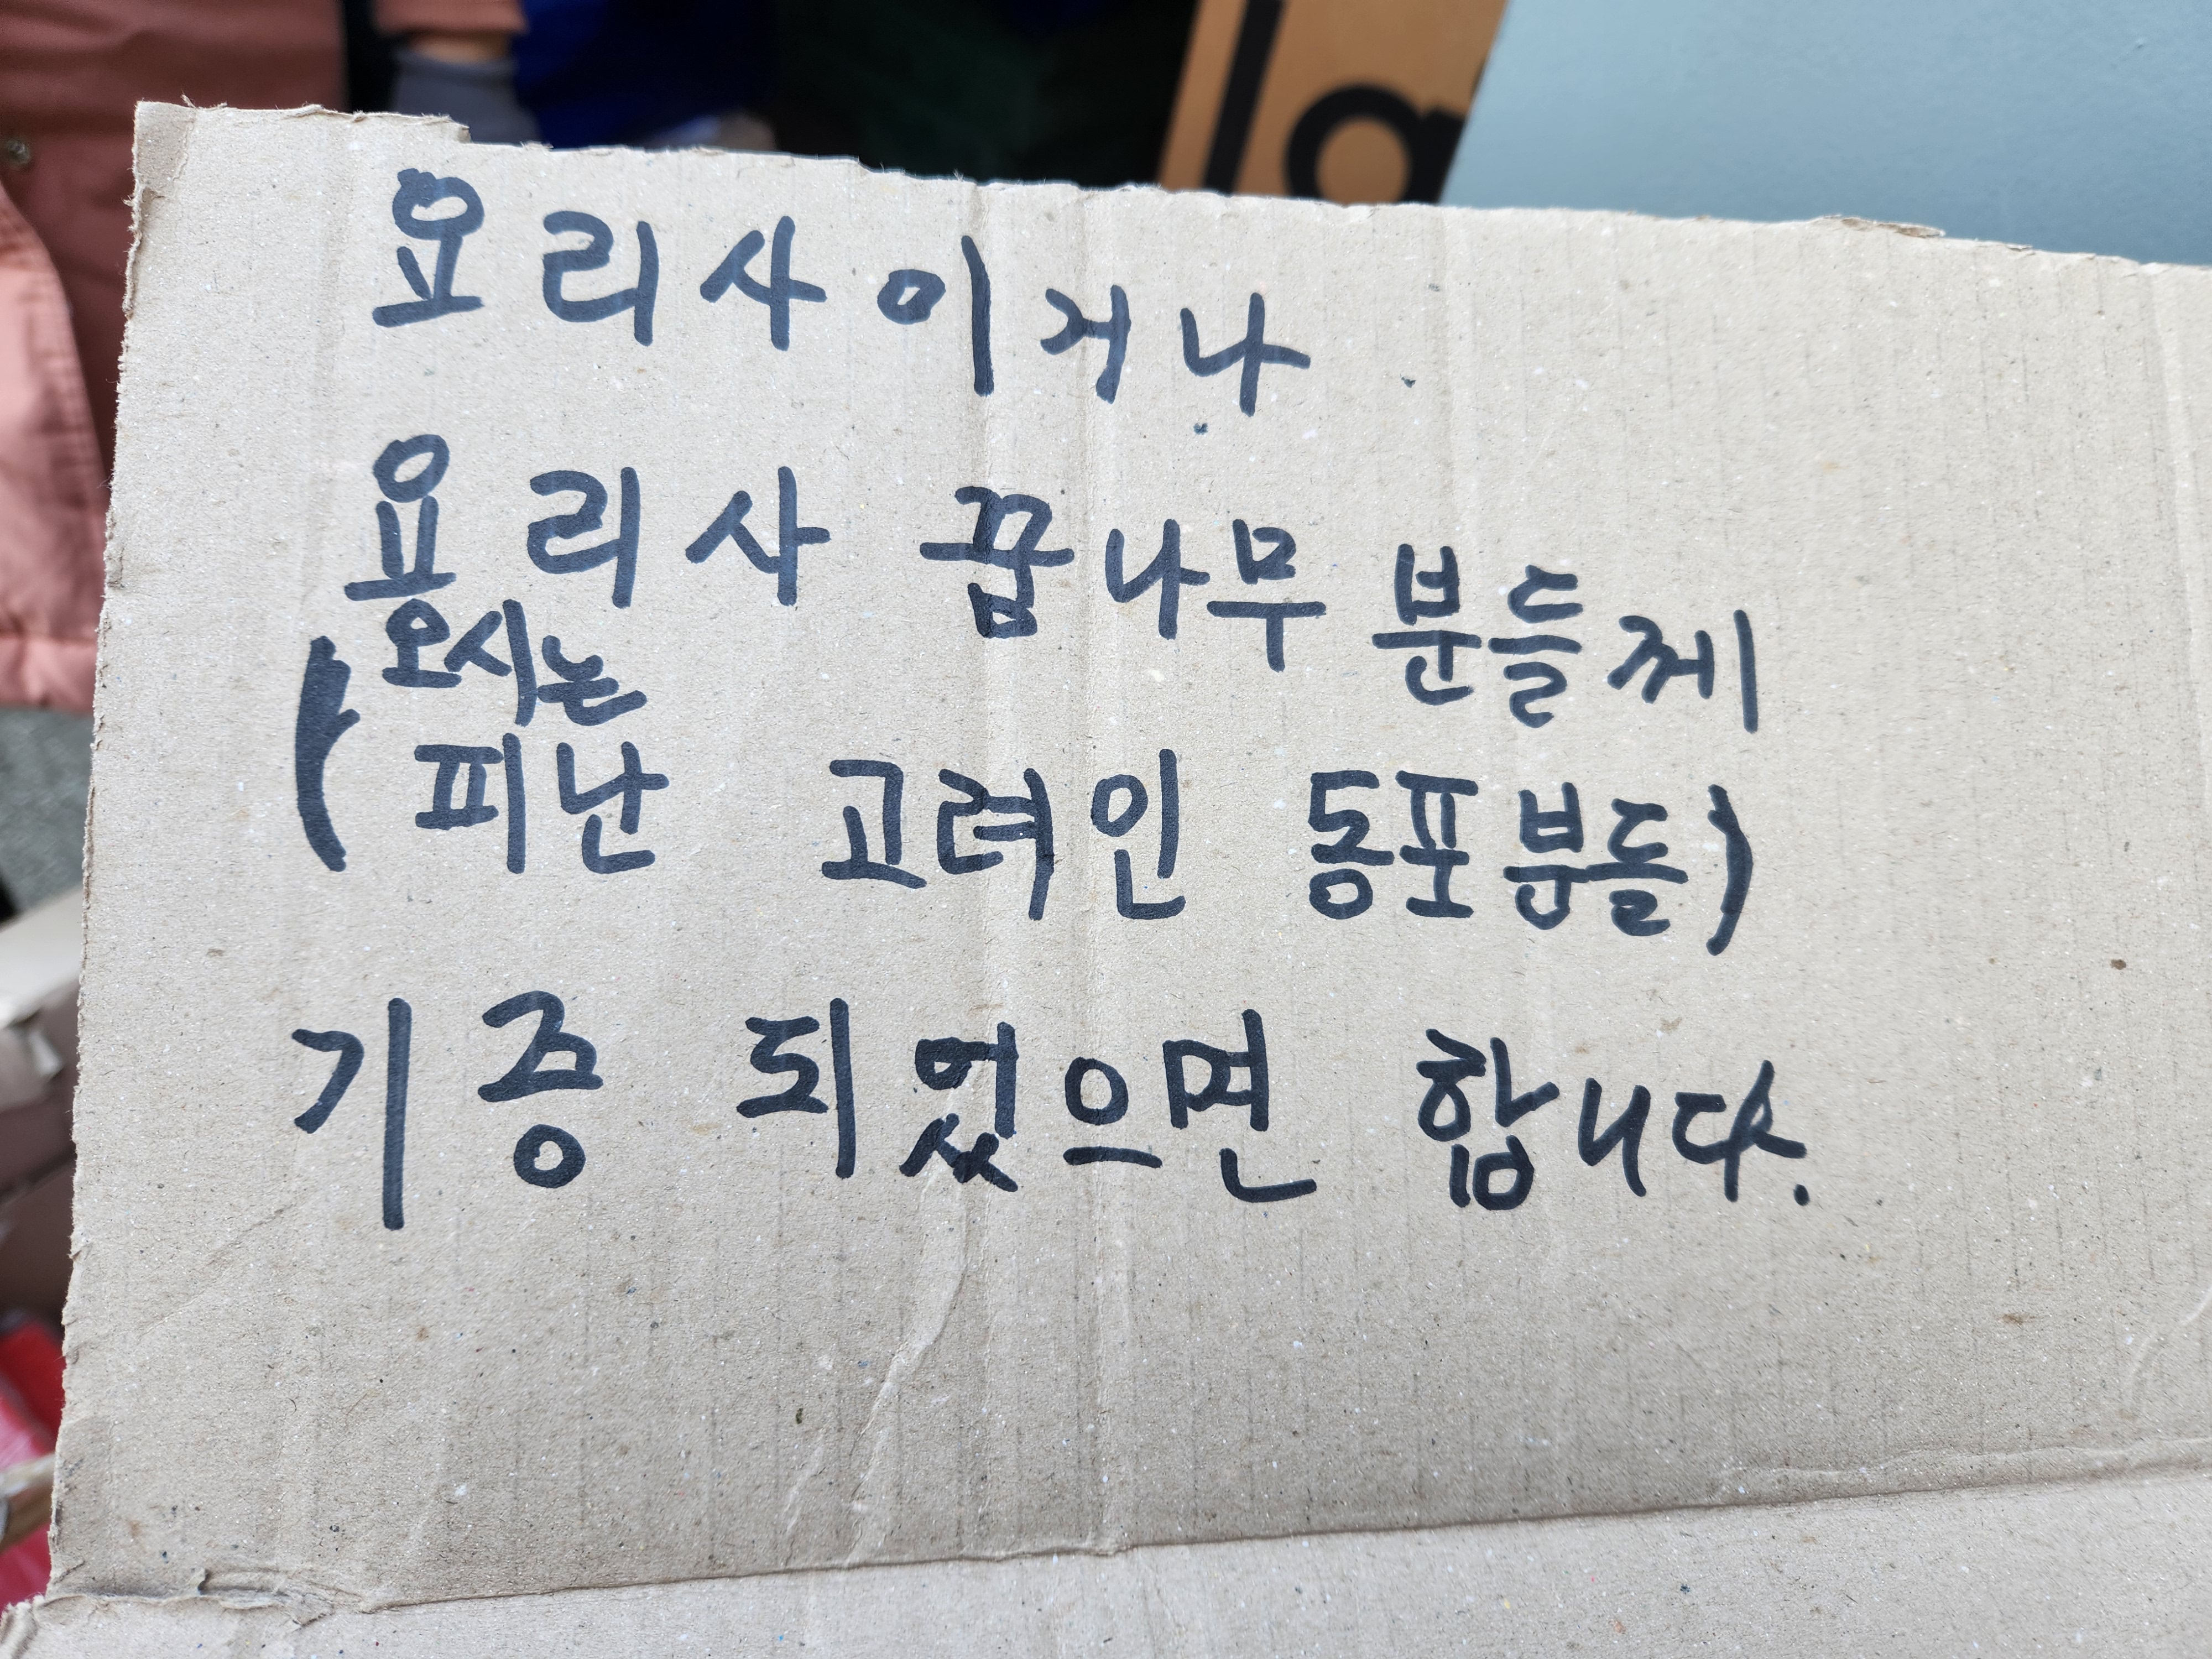 la
요리사이거나
요리사 꿈나무 분들께
(오시는
피난 고려인 동포분들)
기증 되었으면 합니다.